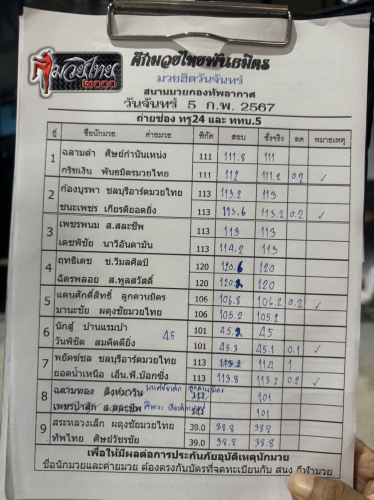 มวยไทย
ศึกมวยไทยพันธมิตร
มวยฮิตวันจันทร์
สนามมวยกองทัพอากาศ
วันจันทร์ 5 ก.พ. 2567
ถ่ายช่อง ทรู24 และ ททบ.5
คู่ ชื่อนักมวย ค่ายมวย พิกัด สอบ ชั่งจริง ลด หมายเหตุ
1 ฉลามดำ ศิษย์กำนันแหน่ง 111 111.8 111
กริชเงิน พันธมิตรมวยไทย 111 112 111.2 0.2 ✓
2 ก้องบูรพา ชลบุรีอาร์ตมวยไทย 113 113.2 113
ชนะเพชร เกียรติยอดยิ่ง 113 113.6 113.2 0.2 ✓
3 เพชรพนม ส.สละชีพ 113 113 113
เดชพิชัย นาวีอันดามัน 113 114.2 113
4 ฤทธิเดช ช.วิมลศิลป์ 120 120.6 120
ฉัตรพลอย ส.พูลสวัสดิ์ 120 120.2 120
5 แดนศักดิ์สิทธิ์ ลูกควนมิตร 106 106.8 106.2 0.2 ✓
มานะชัย ผดุงชัยมวยไทย 106 105.2 105.2
6 นักสู้ บ้านแรมบ้า 101 45.2 45
วันพิชิต สมคิดดียิ่ง 45 101 45.2 45.1 0.1 ✓
7 พยัคฆ์ชล ชลบุรีอาร์ตมวยไทย 113 114 1
ยอดน้ำเหนือ เอ็น.พี.บ๊อกซิ่ง 113 113.8 113.2 0.2 ✓
8 ฉลามทอง 101
เพชรป่าสัก ส.สละชีพ 101
9 สระหลวงเล็ก ผดุงชัยมวยไทย 39.0 38.8 38.8
ทัพไทย ศิษย์วัชรชัย 39.0 38.8 38.8
เพื่อให้มีผลต่อการประกันภัยอุบัติเหตุนักมวย
ชื่อนักมวยและค่ายมวย ต้องตรงกับบัตรที่จดทะเบียนกับ สนง.กีฬามวย